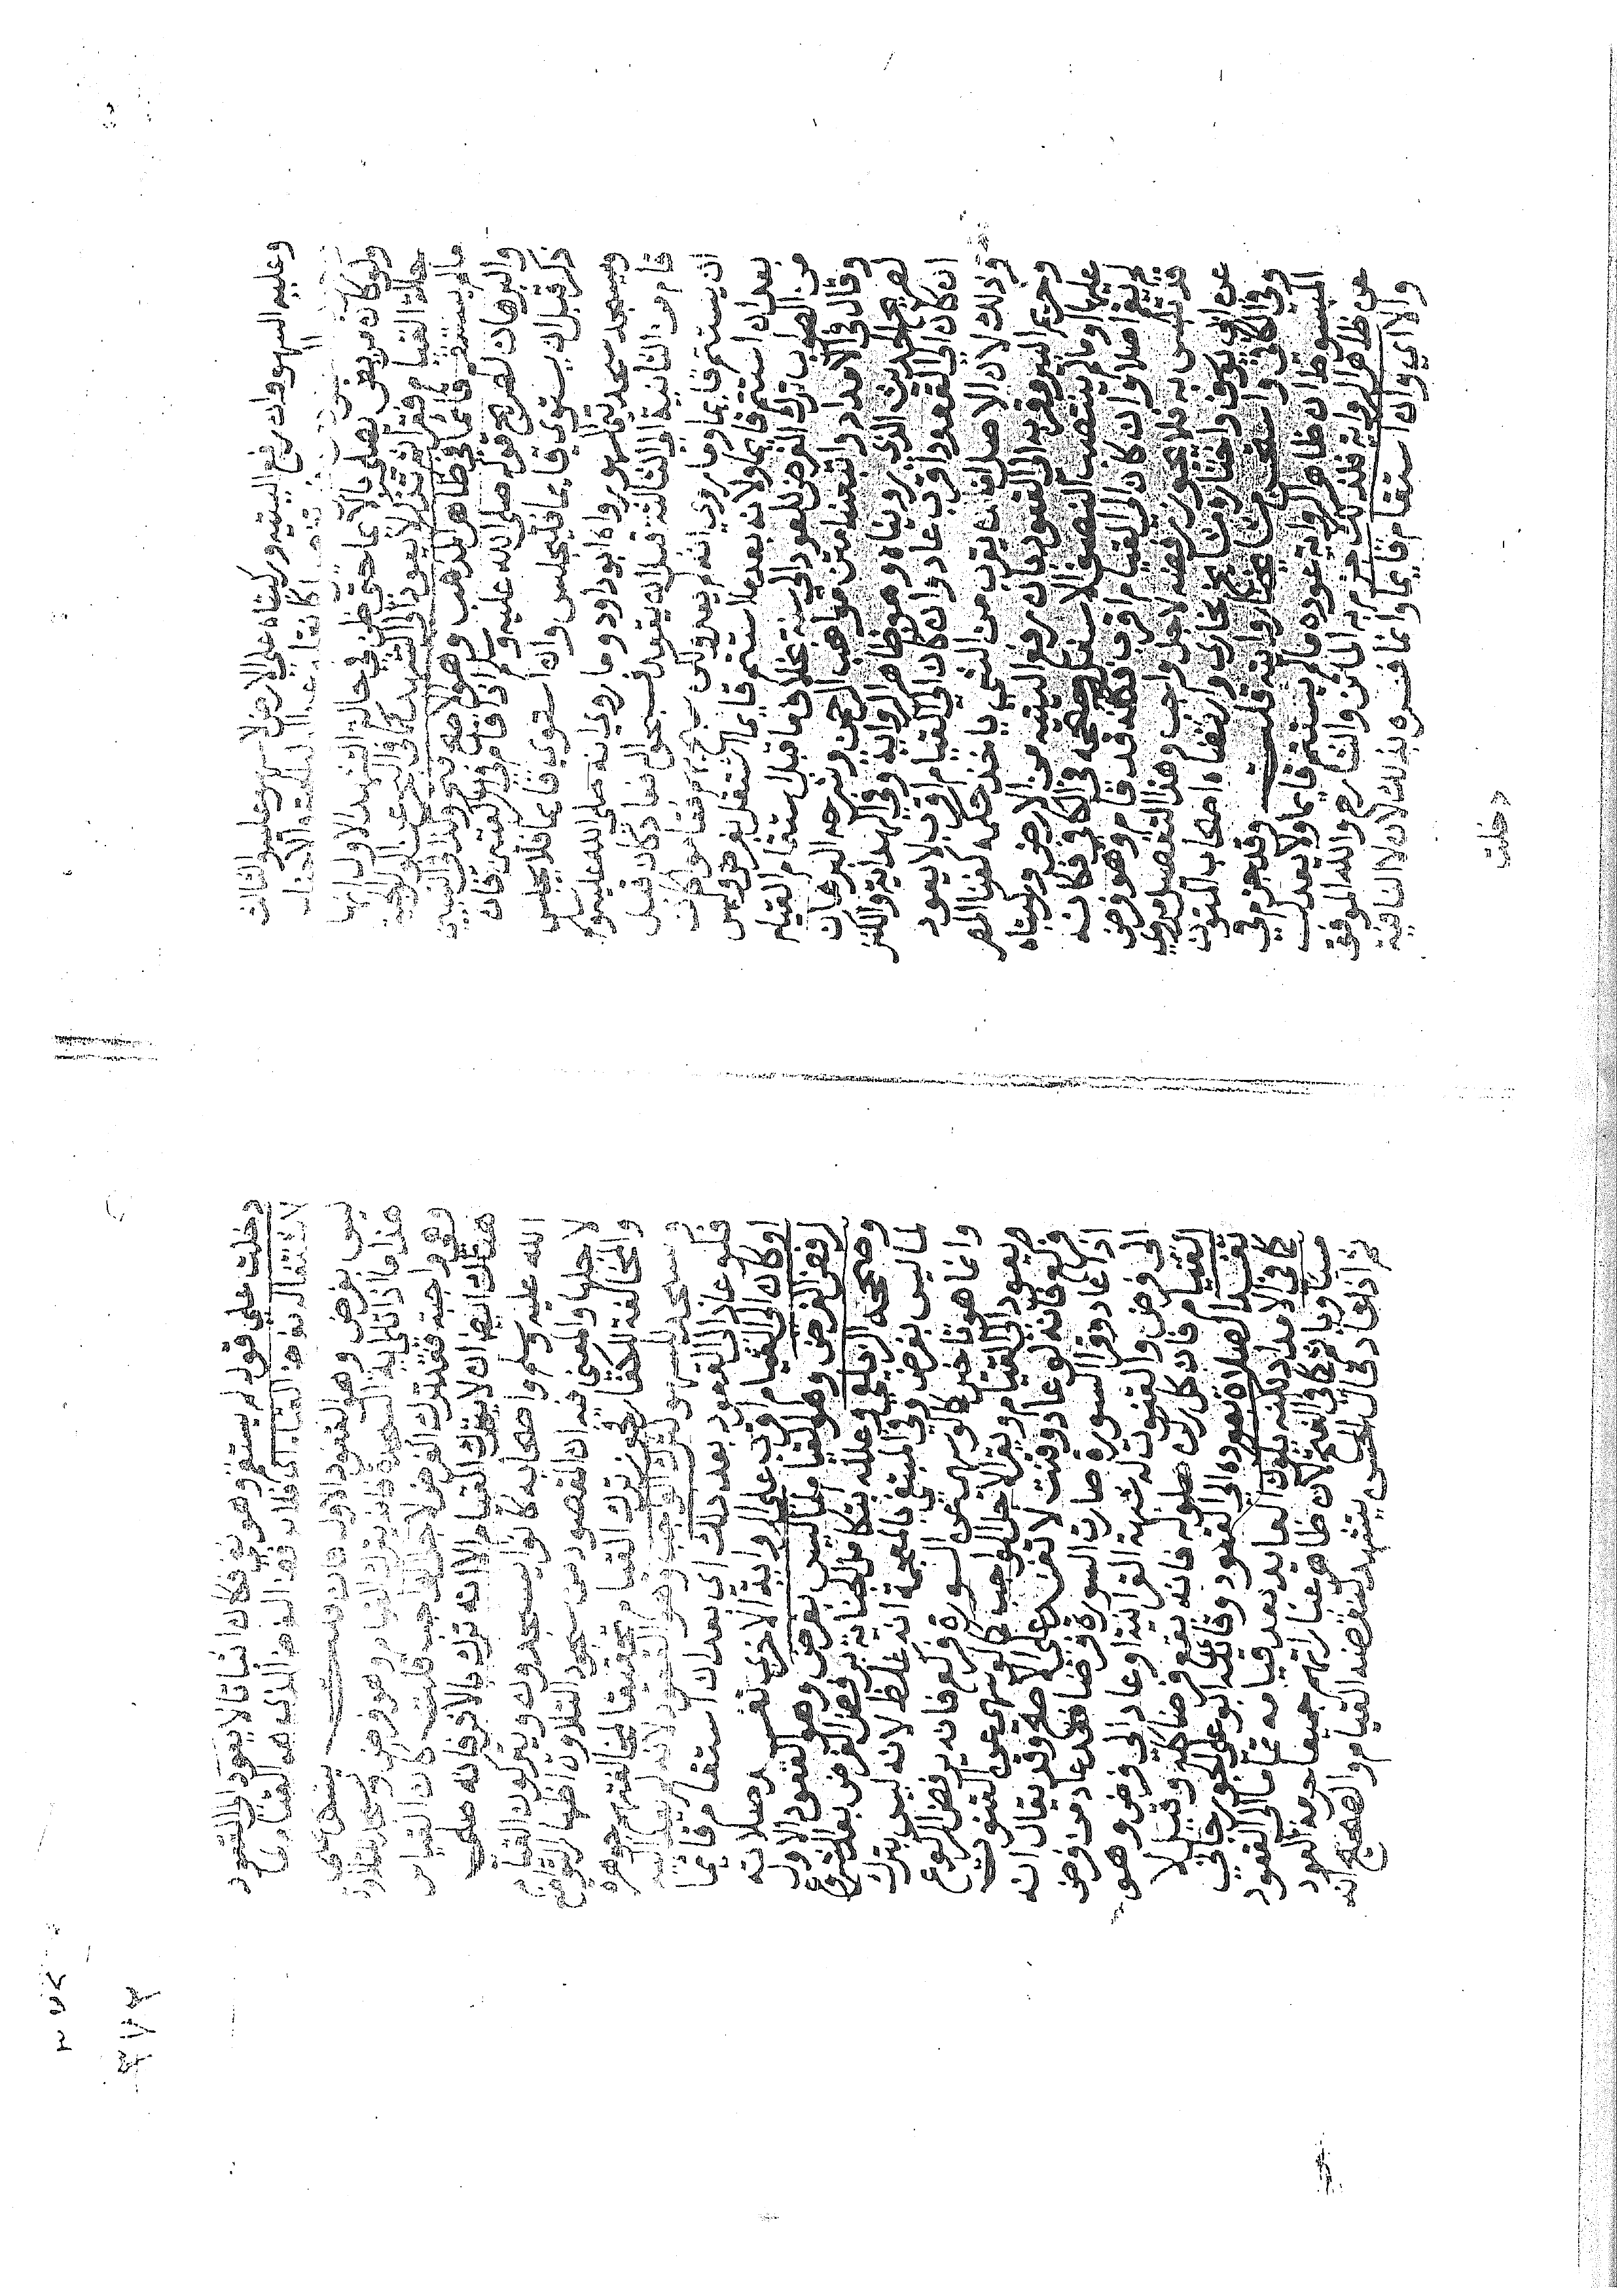 وعليه السهو وان رفع اليتيه وركبتاه على الارض لا سهو عليه
ولو كان مريض يصلي بالايماء حتى ظن في حالة التشهد الاول انها
حالة القيام فقرأ ثم تذكر لا يعود الى التشهد كما في البحر عن الولوالجية
ما لم يستقم قائما في ظاهر المذهب وهو الاصح
والبرهان لصريح قوله صلى الله عليه وسلم اذا قام في الركعتين فان
ذكر قبل ان يستوي قايما فليجلس وان استوى قايما فلا يجلس
ويسجد سجدتي السهو رواه ابو داود وما روي انه صلى الله عليه وسلم
قام من الثانية الى الثالثة قبل ان يقعد فسبحوا له فعاد كان قبل
ان يستتم قايما وما روي انه لم يعد ولكن سبح بهم فقاموا كان
بعد ان استتم قايما ولانه بعد ما استتم قايما اشتغل بفرض وليس
من الصواب ترك الفرض للعود الى سنة بخلاف ما قبل استتمام القيام
وقال في الامداد واتبعنا متن مواهب الرحمن وشرحه البرهان
لصريح الحديث الذي رويناه وهو ظاهر الرواية وفي الهداية والكنز
ان كان الى القعود اقرب عاد وان كان الى القيام اقرب لا يعود
وذلك لان الاصل ان ما يقرب من الشيء ياخذ حكمه كفناء المصر
وحريم البير وقربه الى القعود بان رفع اليتيه من الارض وركبتاه
عليها او ما لم ينتصب النصف الاسفل وصححه في الكافي فكانه
لم يقم اصلا وان كان الى القيام اقرب فكانه قد قام وهو فرض
قد تلبس به فلا يجوز رفضه لاجل واجب وهذا التفصيل مروي
عن ابي يوسف واختاره مشايخ بخارى وارتضاه اصحاب المتون
وفي الكافي واستحسن مشايخنا روايته قلت وقد جزم في
المبسوط ان ظاهر الرواية عوده ما لم يستتم قايما ولا يعدل
عن ظاهر الرواية فلذلك جزم به الماتن والشارح والله الموفق
والا اي وان استقام قايما وانما فسره بذلك لان لا النافية
دخلت
دخلت على قوله لم يستقم وهو نفي فكان اثباتا لا يعود الى القعود
لاشتغاله بفرض القيام اي فلان رفض الفرض الذي هو القيام بما
ليس بفرض وهو القعود الاول فان قيل ينبغي في
هذا ما اذا تلا اية السجدة فانه يترك القيام وهو فرض ويسجد للتلاوة
وهو واجبة فقد ترك الفرض لاجل الواجب قلت كان القياس
هناك ايضا ان لا يترك القيام الا انه ترك بالاثر فانه صلى
الله عليه وسلم واصحابه كانوا يسجدون ويتركون القيام
لاجلها والمعنى فيه ان المقصود من سجود التلاوة اظهار التواضع
والمخالفة للكفار فجوز ترك القيام تحقيقا لمخالفتهم جوهره
وسجد للسهو لترك الواجب وهو القعود
فلو عاد الى القعود بعد ذلك اي بعد ان استقام قايما
او كان الى القيام اقرب على الرواية الاخرى تفسد صلاته
لرفض الفرض وهو القيام لما ليس بفرض وهو القعود الاول
وصححه الزيلعي وعلله بتكامل الجناية برفض الفرض بعد الشروع
لما ليس بفرض وفي المبتغى بالمعجمة انه غلط لانه ليس بترك
وانما هو تاخير كما لو سهى عن السورة فركع فانه يرفض الركوع
ويعود الى القيام ويقرا لاجل الواجب وكما لو سهى عن القنوت
فركع فانه لو عاد وقنت لا تفسد على الاصح وقد يقال انه
اذا عاد وقرا السورة صارت السورة فرضا فقد عاد من فرض
الى فرض والقنوت له شبهة القرانية او عاد الى فرض وهو
القيام فان كل ركن طوله فانه يقع فرضا كله وقيل لا
تفسد الصلاة بعوده الى القعود وقائله ابو عبد الله الجرجاني
كما في الامداد لكنه يكون العايد بعد قيامه تماما الى القعود
مسيئا وياثم كما في الفتح لان ظاهر عباراتهم جميعا حرمة العود
ثم اذا عاد قال الحسن يتشهد لنقضه القيام والصحيح انه